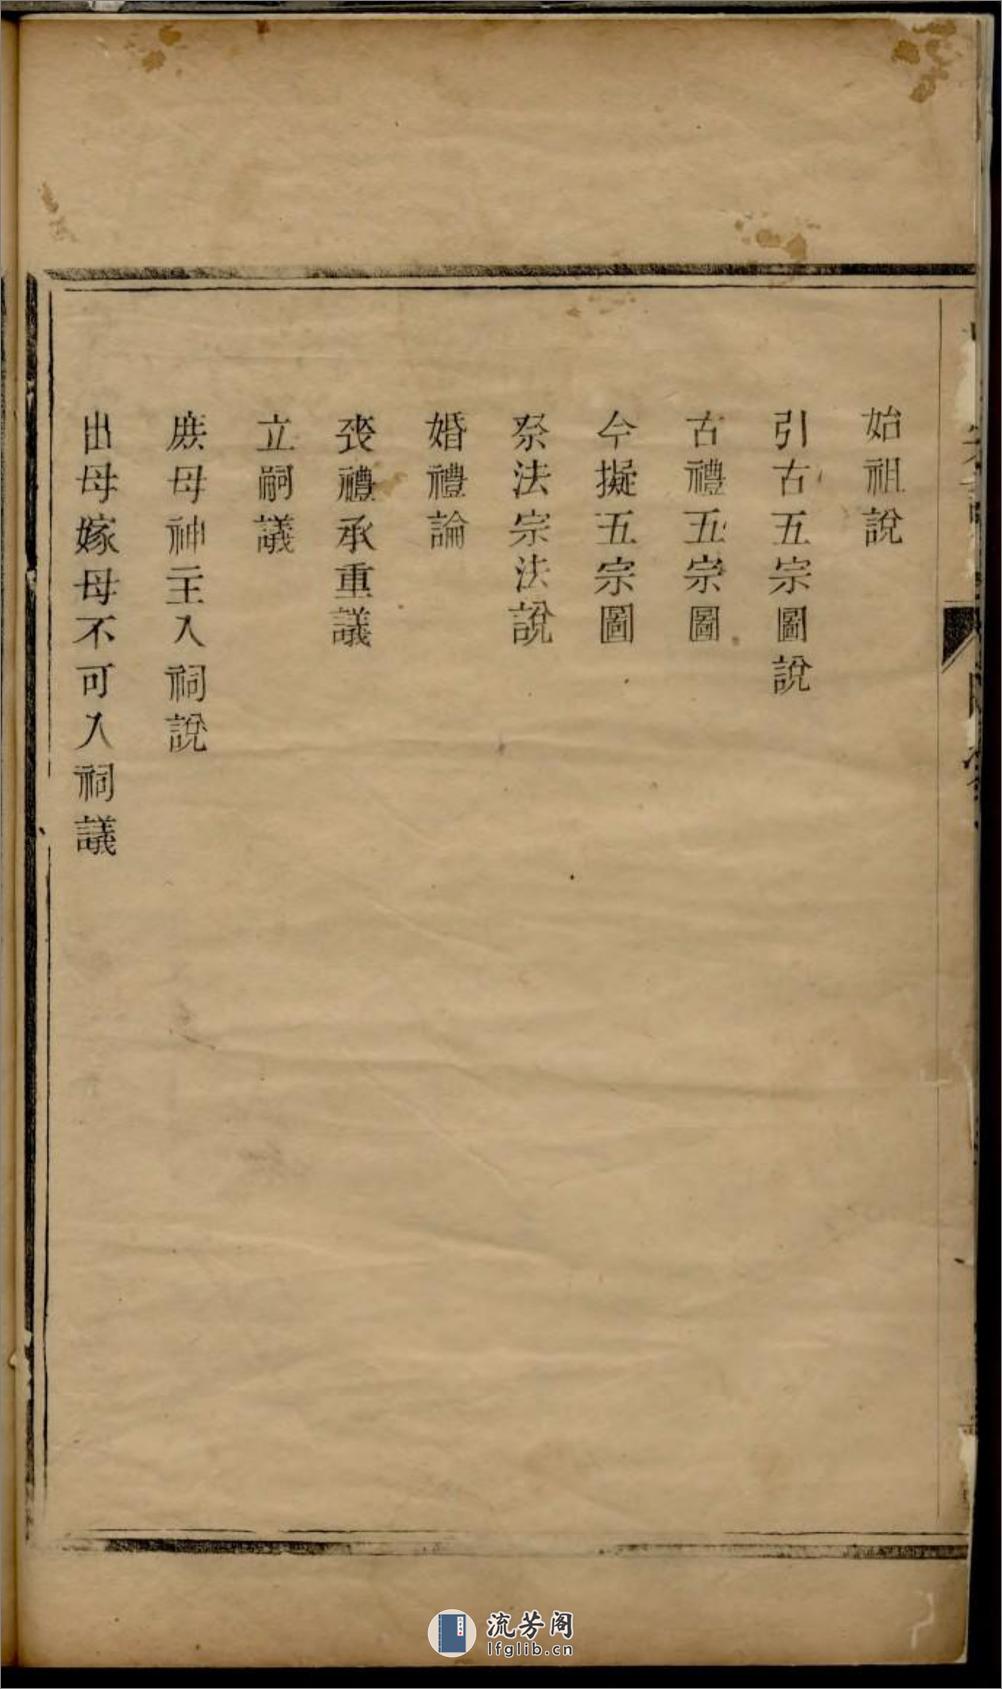 始祖說
引古五宗圖說
古禮五宗圖
今擬五宗圖
祭法宗法說
婚禮論
喪禮承重議
立嗣議
庶母神主入祠說
出母嫁母不可入祠議
流芳阁
lfglib.cn